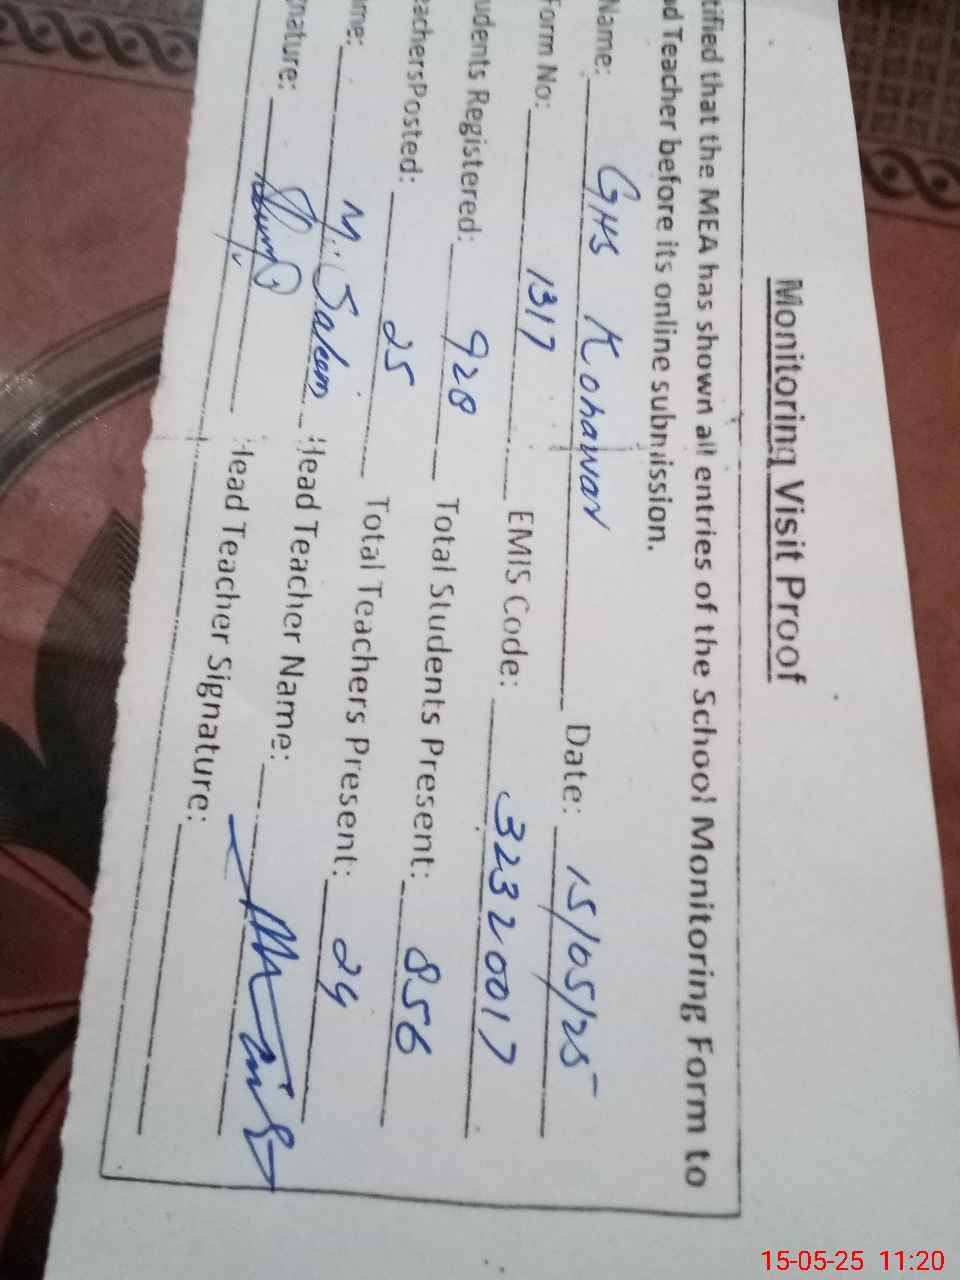 Monitoring Visit Proof
tified that the MEA has shown all entries of the School Monitoring Form to
d Teacher before its online submission.
Name: GHS Kohawar Date: 15/05/25
Form No: 1317 EMIS Code: 32320017
udents Registered: 928 Total Students Present: 856
eachersPosted: 25 Total Teachers Present: 24
me: M. Saleem Head Teacher Name:
nature: Head Teacher Signature:
15-05-25 11:20